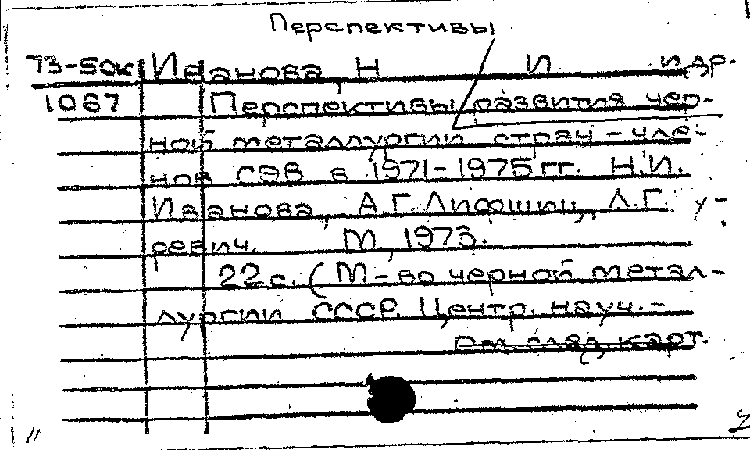 Перспективы
73-50к Иванова, Н И и др.
1067 Перспективы развития чер-
ной металлургии стран-чле-
нов СЭВ в 1971-1975 гг. Н.И.
Иванова, А.Г. Лифшиц, Л.Г. у-
ревич. М., 1973.
22 с. (М-во черной метал-
лургии СССР. Центр. науч.-
См. след. карт.